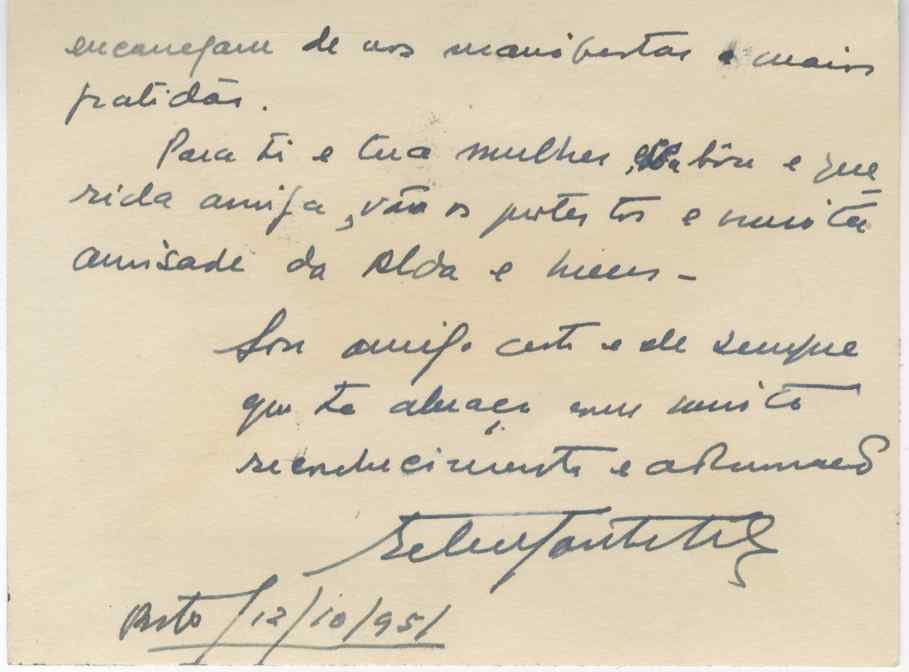 encarregam de vos manifestar a maior
gratidão.
Para ti e tua mulher, boa e que
rida amiga, vão os protestos e muita
amisade da Alda e meus -
Sou amigo certo e de sempre
que te abraça com muito
reconhecimento e
Porto / 12/10/951